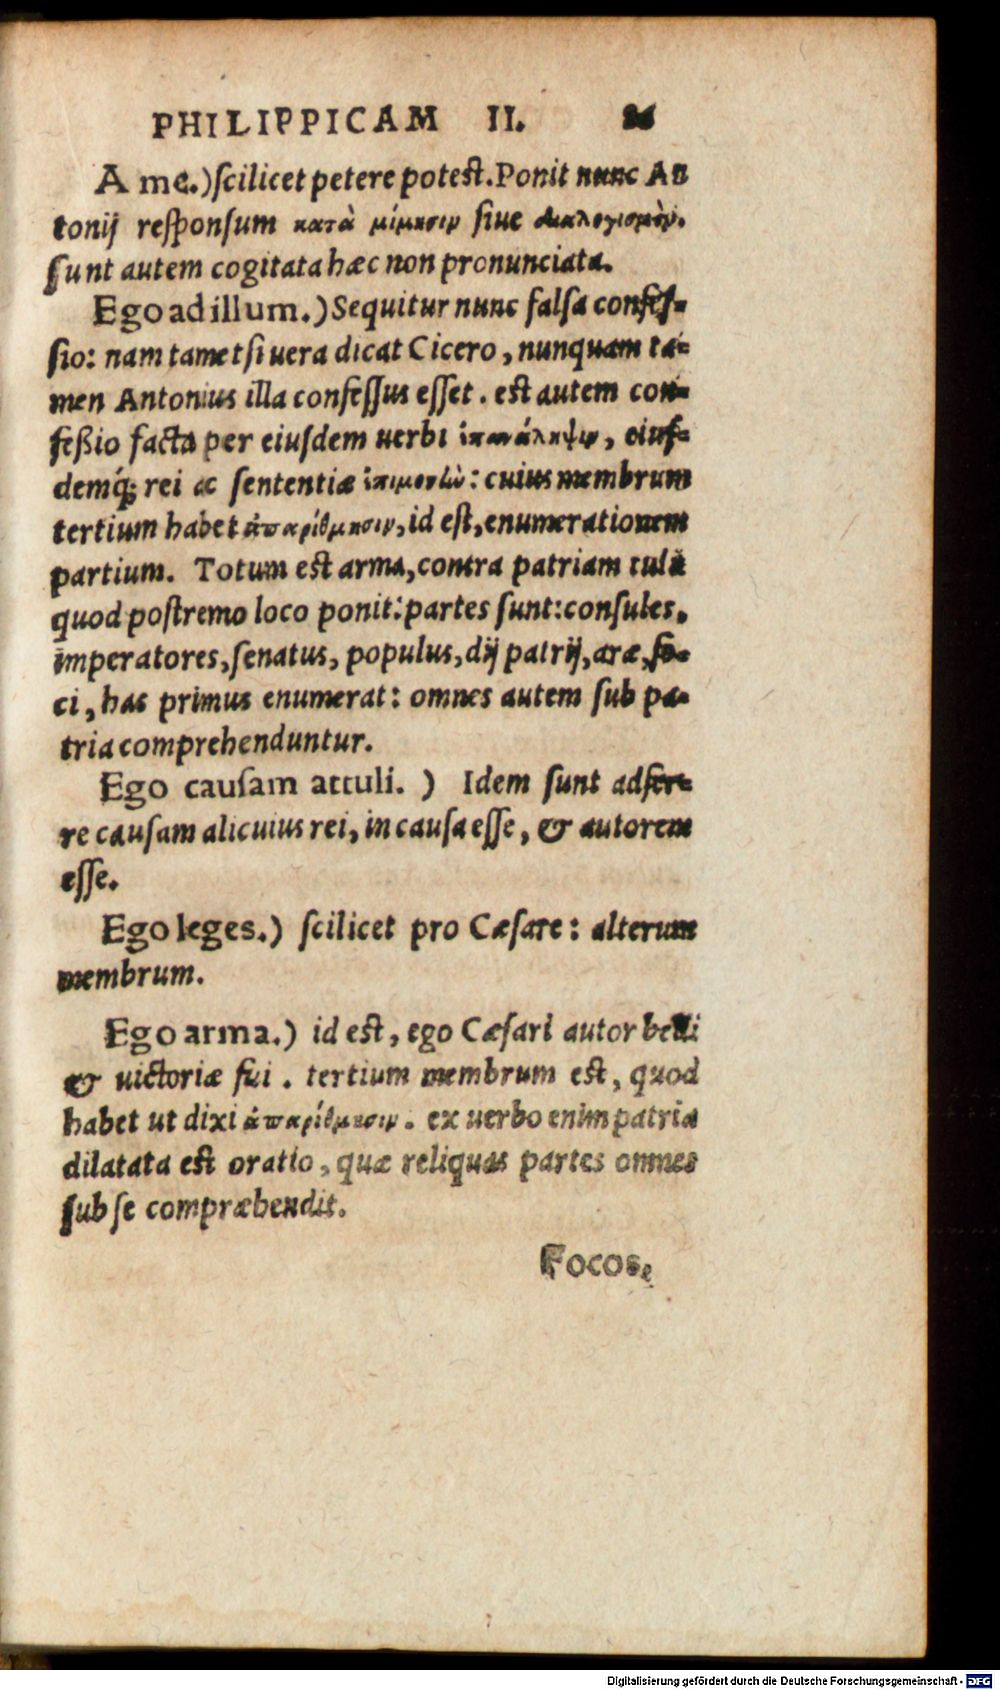 PHILIPPICAM II. 86
A me.) scilicet petere potest. Ponit nunc An
tonij responsum κατὰ μίμησιν siue διαλογισμὸν.
sunt autem cogitata hæc non pronunciata.
Ego ad illum.) Sequitur nunc falsa confes-
sio: nam tametsi uera dicat Cicero, nunquam ta-
men Antonius illa confessus esset. est autem con-
feßio facta per eiusdem uerbi ἐπανάληψιν, eius-
demq́; rei ac sententiæ ἐπιμονὼ: cuius membrum
tertium habet ἀπαρίθμησιν, id est, enumerationem
partium. Totum est arma, contra patriam tuli
quod postremo loco ponit: partes sunt: consules,
imperatores, senatus, populus, dij patrij, aræ, fo-
ci, has primus enumerat: omnes autem sub pa-
tria comprehenduntur.
Ego causam attuli. ) Idem sunt adfer-
re causam alicuius rei, in causa esse, & autorem
esse.
Ego leges.) scilicet pro Cæsare: alterum
membrum.
Ego arma.) id est, ego Cæsari autor belli
& uictoriæ fui. tertium membrum est, quod
habet ut dixi ἀπαρίθμησιν. ex uerbo enim patria
dilatata est oratio, quæ reliquas partes omnes
sub se compræhendit.
Focos.
Digitalisierung gefördert durch die Deutsche Forschungsgemeinschaft - DFG